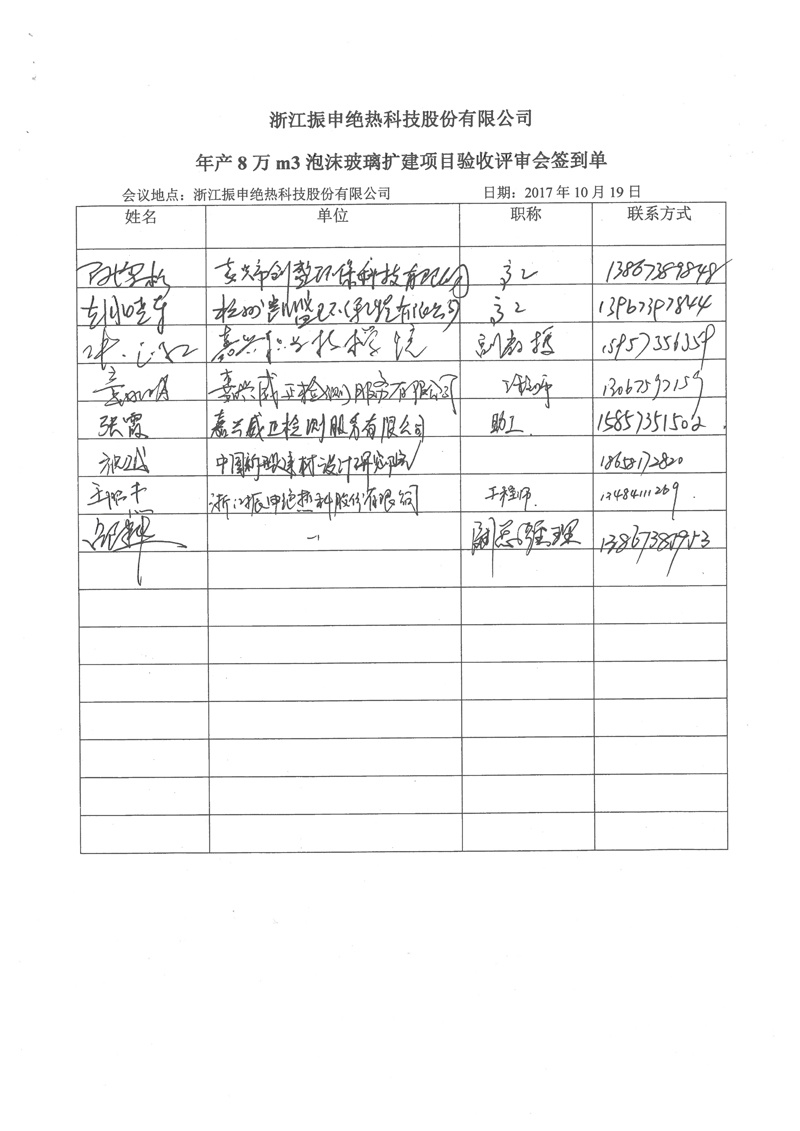 浙江振申绝热科技股份有限公司
年产 8 万 m3 泡沫玻璃扩建项目验收评审会签到单
会议地点：浙江振申绝热科技股份有限公司 日期：2017 年 10 月 19 日
姓名 单位 职称 联系方式
嘉兴市创 环保科技有限公司 高工 13867389848
杭州凯 环保 有限公司 高工 13967397844
嘉兴职业技术学院 副教授 15957356359
嘉兴威正检测服务有限公司 工程师 13067597159
张霞 嘉兴威正检测服务有限公司 助工 15857351502
中国新型建材设计研究院 18658172820
王 浙江振申绝热科技股份有限公司 工程师 13484111269
邹辉 副总经理 13867380953